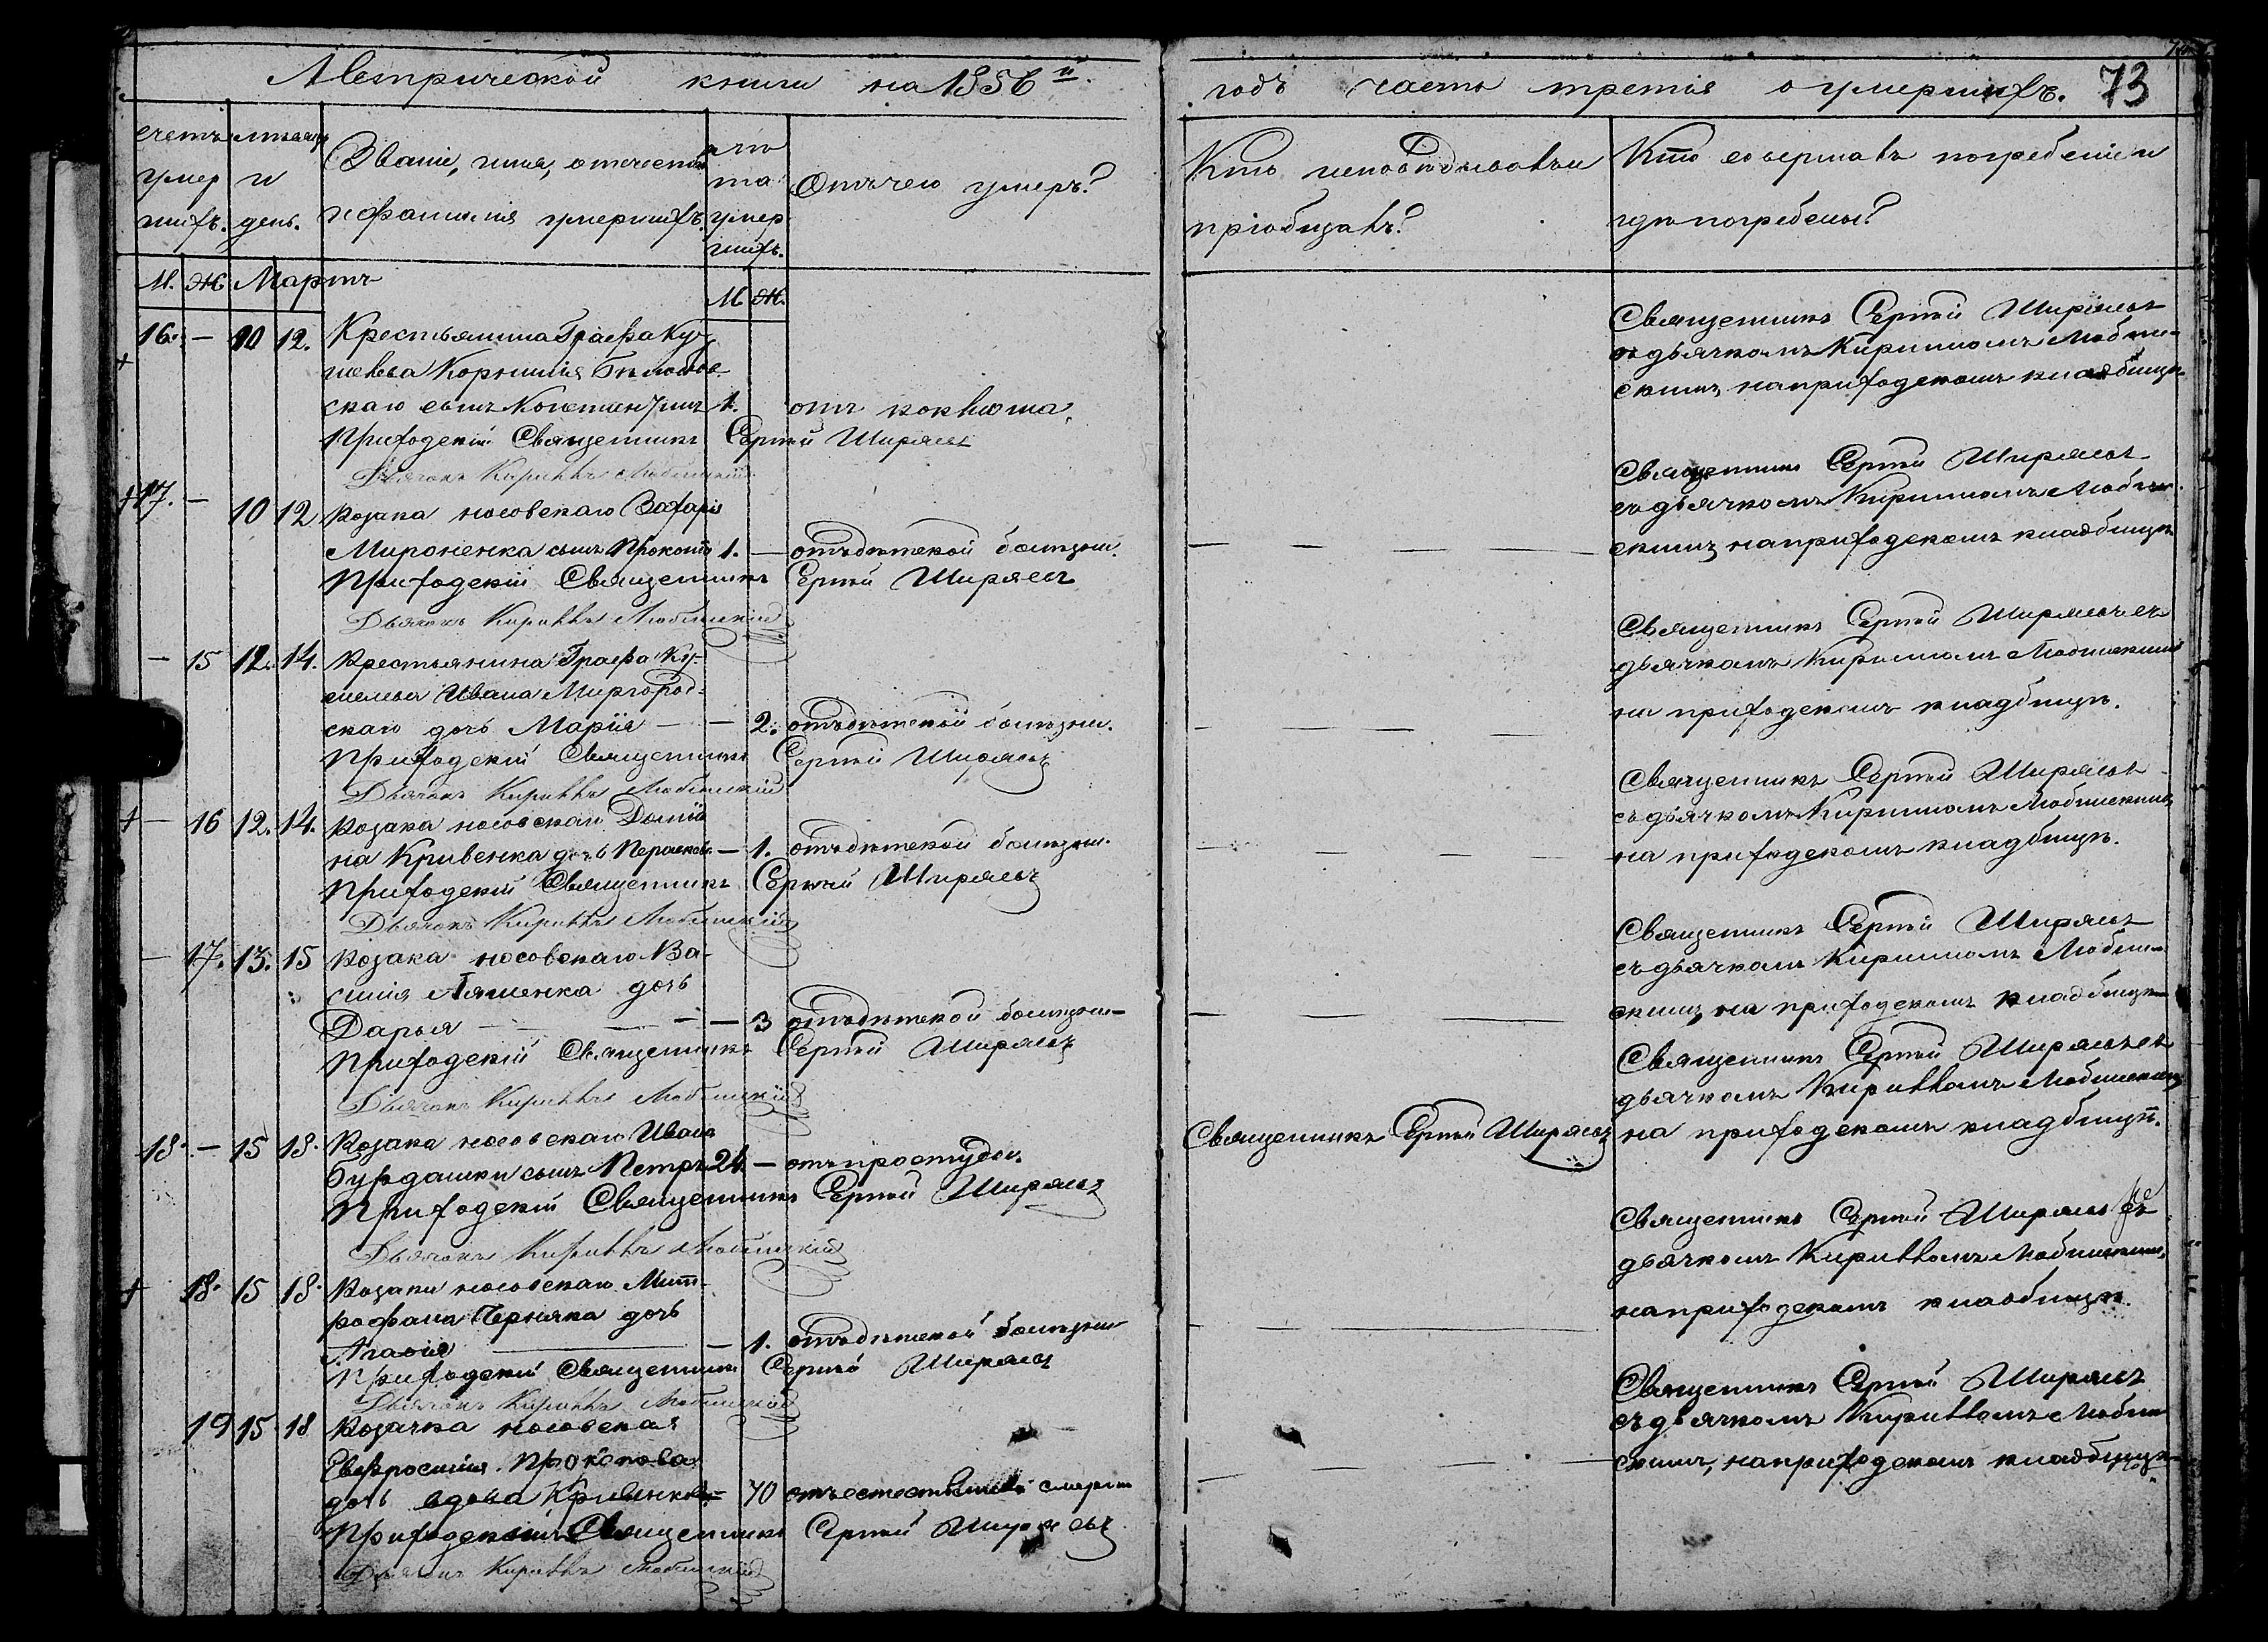 Метрической книги на 1856й.
годъ часть третія о умершихъ. 73
счетъ умершихъ.
мѣсяцъ и день.
Званіе, имя, отчество
и фамилія умершихъ.
лѣта умершихъ.
Отъ чего умеръ?
Кто исповѣдывалъ и
пріобщалъ?
Кто совершалъ погребеніе и
гдѣ погребены?
М. Ж. Мартъ
М. Ж.
16. — 10 12. Крестьянина Графа Ку-
шелева Корнилія Бѣловос
скаго сынъ Константинъ 1. отъ коклюша.
Приходскій Священникъ Сергій Ширяевъ
Дьячокъ Кириллъ Любинскій
Священникъ Сергій Ширяевъ
съ дьячкомъ Кирилломъ Любин-
скимъ, на приходскомъ кладбищѣ.
17. — 10 12 Козака носовскаго Захарія
Мироненка сынъ Прокопій 1. — отъ дѣтской болѣзни.
Приходскій Священникъ Сергій Ширяевъ
Дьячокъ Кириллъ Любинскій
Священникъ Сергій Ширяевъ
съ дьячкомъ Кирилломъ Любин-
скимъ, на приходскомъ кладбищѣ.
— 15 12. 14. Крестьянина Графа Ку-
шелева Ивана Миргород-
скаго дочь Марія — — 2. отъ дѣтской болѣзни.
Приходскій Священникъ Сергій Ширяевъ
Дьячокъ Кириллъ Любинскій
Священникъ Сергій Ширяевъ съ
дьячкомъ Кирилломъ Любинскимъ
на приходскомъ кладбищѣ.
— 16 12. 14. Козака носовскаго
на Кривенка дочь — 1. отъ дѣтской болѣзни.
Приходскій Священникъ Сергій Ширяевъ
Дьячокъ Кириллъ Любинскій
Священникъ Сергій Ширяевъ
съ дьячкомъ Кирилломъ Любинскимъ
на приходскомъ кладбищѣ.
— 17. 13. 15 Козака носовскаго Ва-
силія Ляшенка дочь
Дарья — — — 3 отъ дѣтской болѣзни
Приходскій Священникъ Сергій Ширяевъ
Дьячокъ Кириллъ Любинскій
Священникъ Сергій Ширяевъ
съ дьячкомъ Кирилломъ Любин-
скимъ, на приходскомъ кладбищѣ
18. — 15 18. Козака носовскаго Ивана
Бурдашки сынъ Петръ 24 — отъ простуды.
Приходскій Священникъ Сергій Ширяевъ
Дьячокъ Кириллъ Любинскій
Священникъ Сергій Ширяевъ
Священникъ Сергій Ширяевъ съ
дьячкомъ Кирилломъ Любинскимъ
на приходскомъ кладбищѣ.
18. 15 18. Козака носовскаго Мит-
рофана Черняка дочь
— 1. отъ дѣтской болѣзни
Приходскій Священникъ Сергій Ширяевъ
Дьячокъ Кириллъ Любинскій
Священникъ Сергій Ширяевъ съ
дьячкомъ Кирилломъ Любинскимъ,
на приходскомъ кладбищѣ.
19 15 18 Козачка носовская
Евфросинія Прокопова
дочь вдова Кривенкова 70 отъ естественной смерти
Приходскій Священникъ Сергій Ширяевъ
Дьячокъ Кириллъ Любинскій
Священникъ Сергій Ширяевъ
съ дьячкомъ Кирилломъ Любин-
скимъ, на приходскомъ кладбищѣ